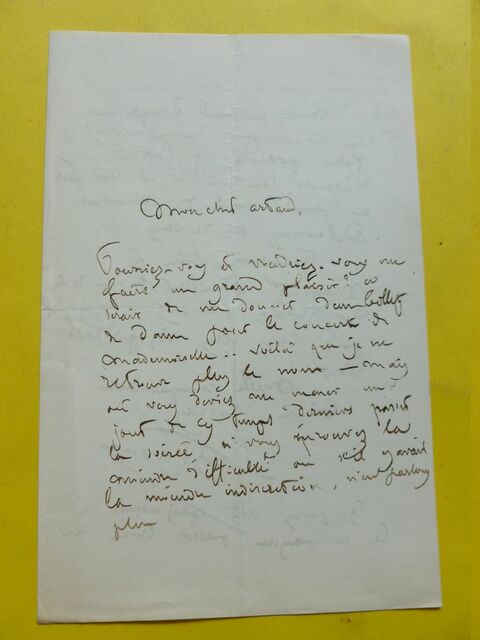 Mon cher artaud,
Pourriez-vous & voudriez-vous me
faire un grand plaisir? ce
serait de me donner deux billets
de dame pour le concert de
mademoiselle .. voilà que je ne
retrouve plus le nom — mais
où vous deviez me mener un
jour de ces temps derniers passer
la soirée, si vous éprouvez la
moindre difficulté ou s'il y avait
la moindre indiscrétion, n'en parlons
plus